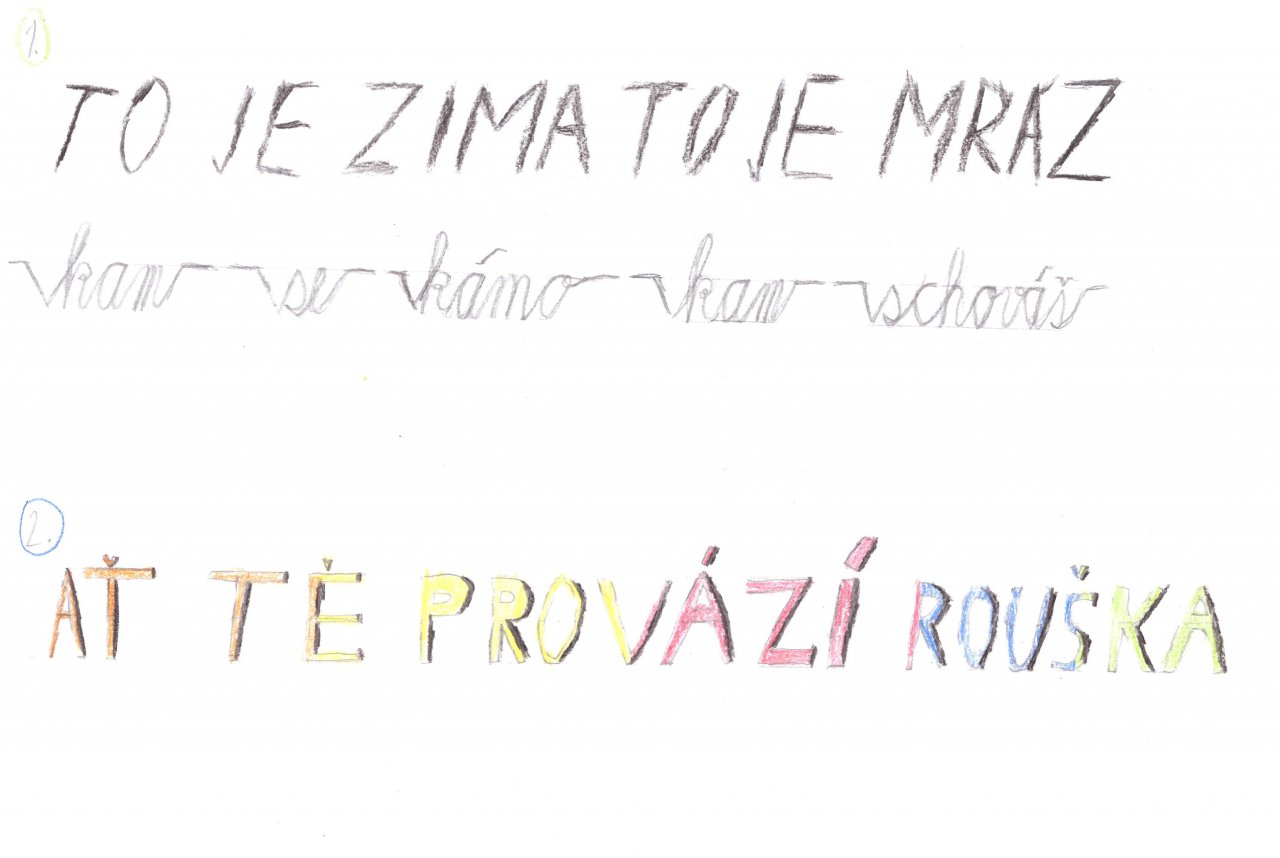 1.
TO JE ZIMA TO JE MRAZ
kam se kámo kam schováš
2.
AŤ TĚ PROVÁZÍ ROUŠKA